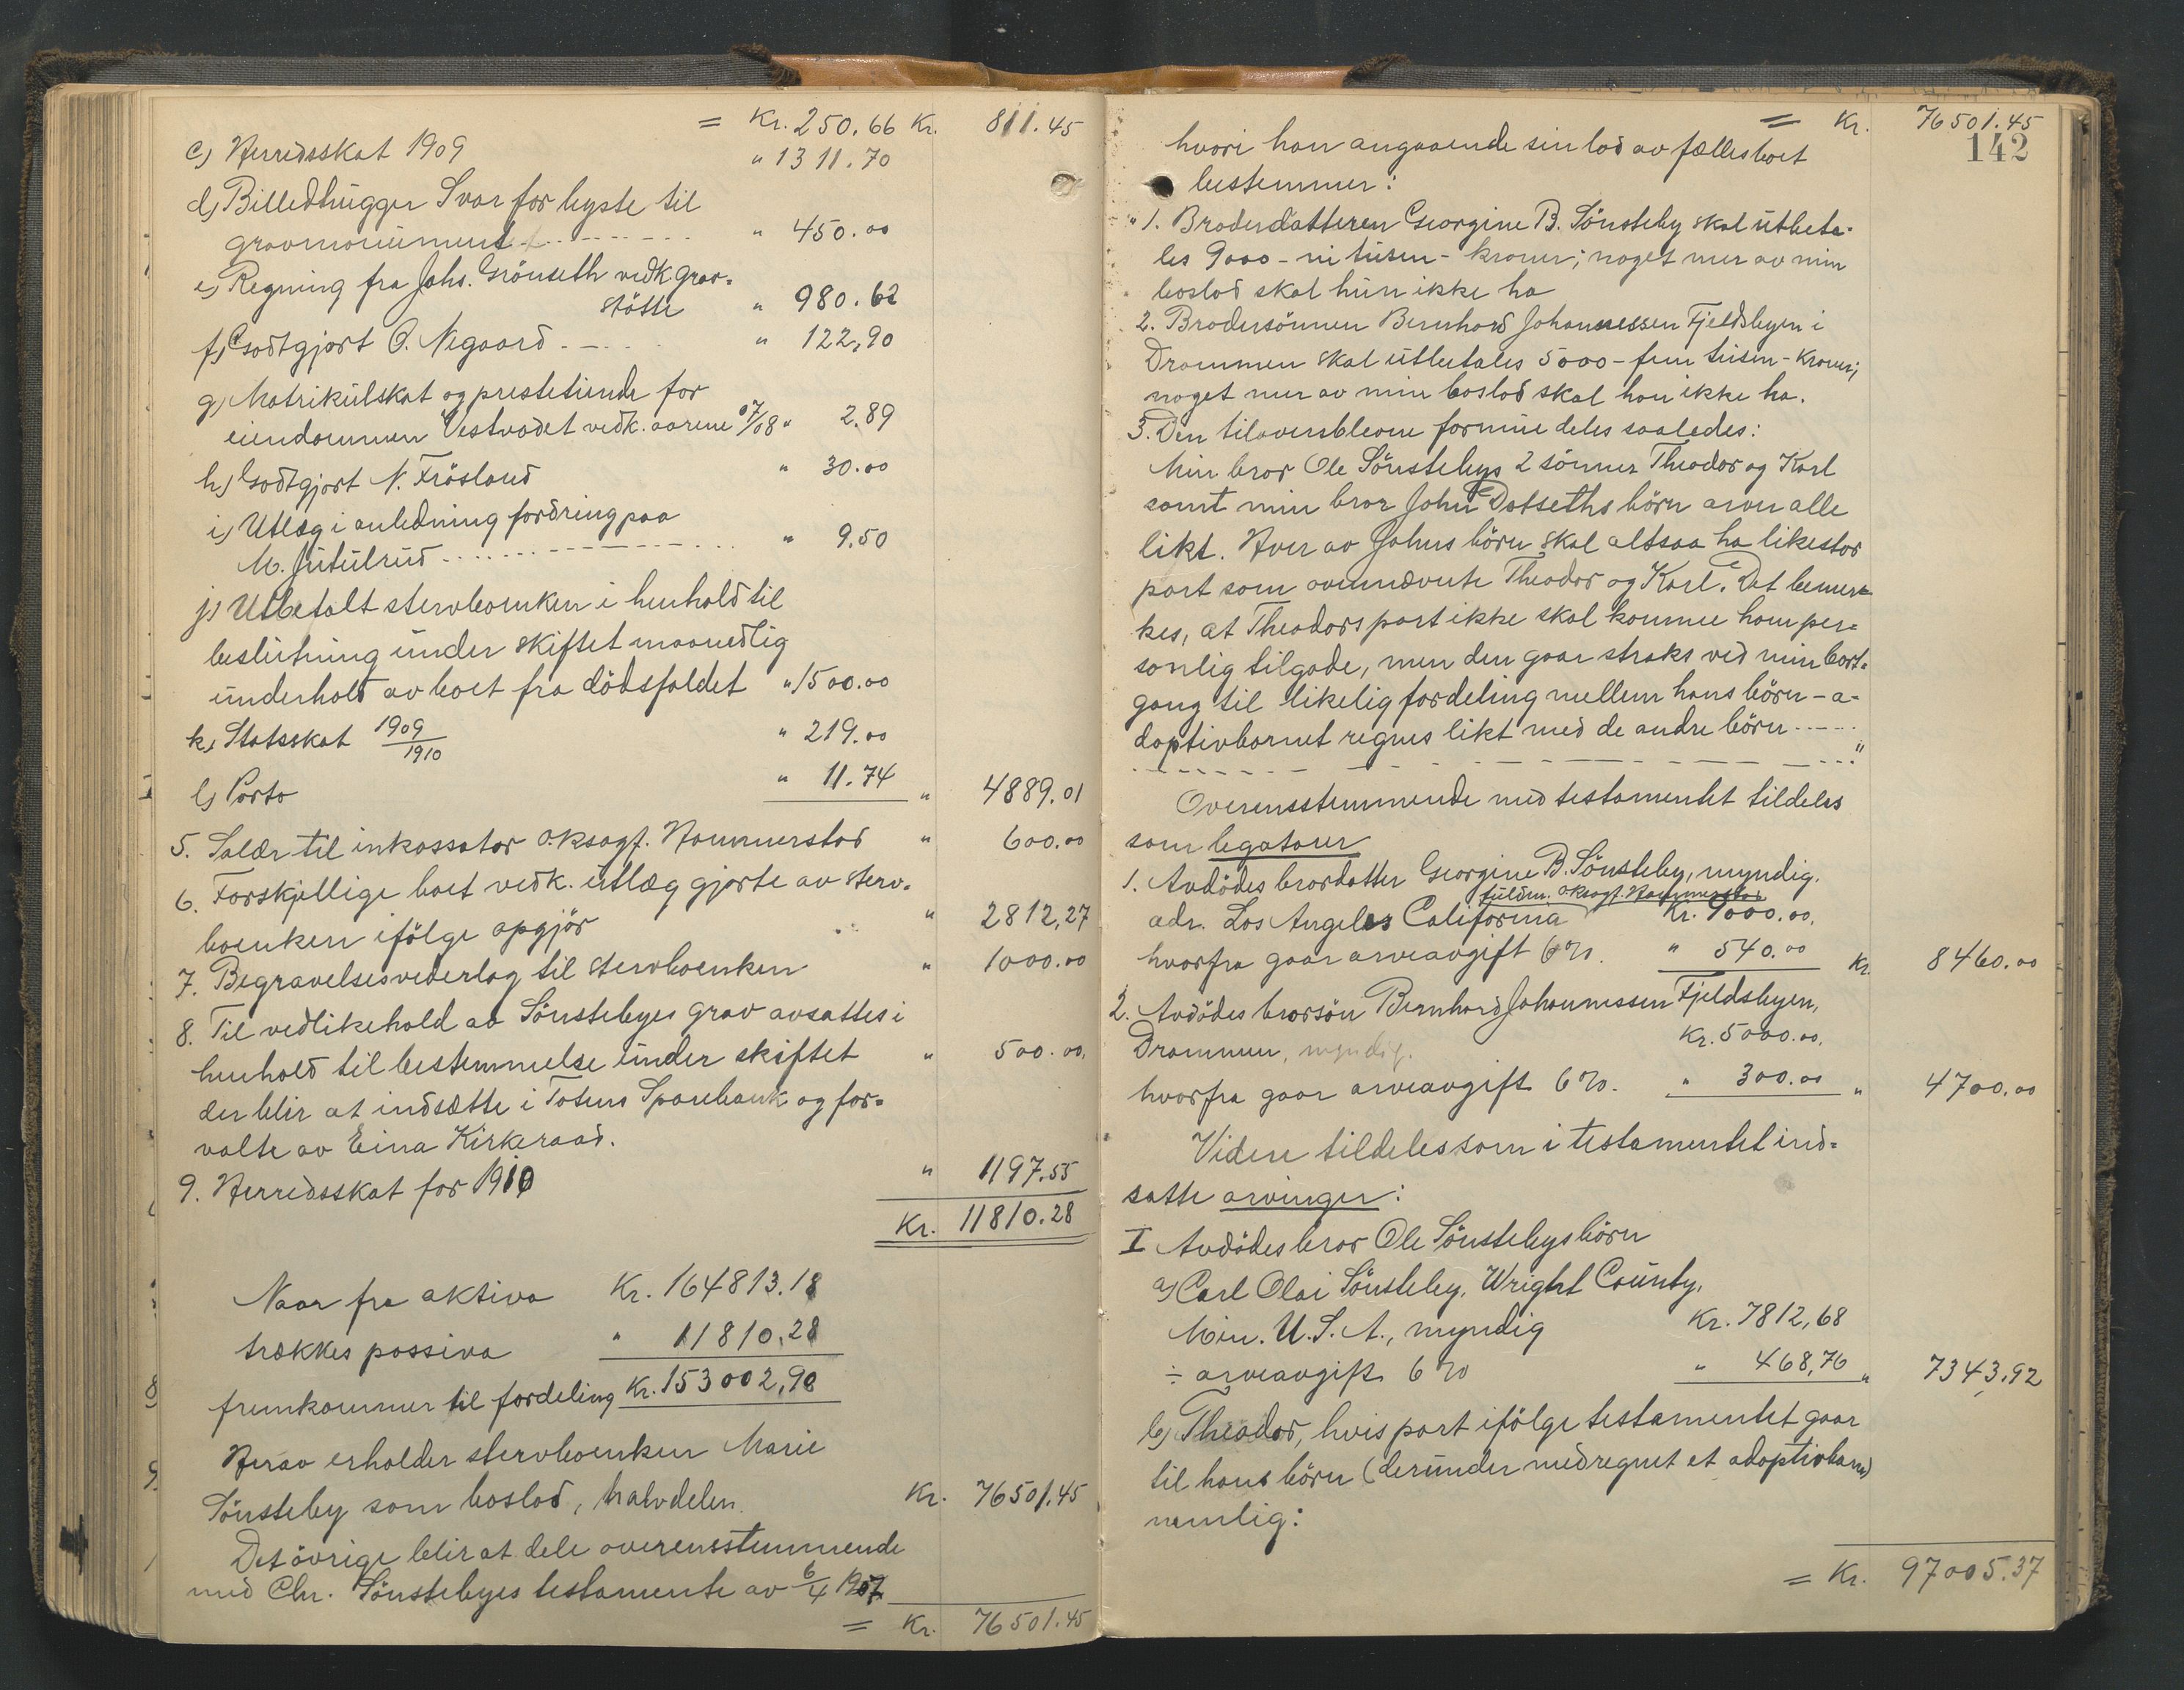 = Kr. 250.66 Kr. 811.45
c) Herredsskat 1909 " 1311.70
d) Billedhugger Svor for byste til
gravmonument " 450.00
e) Regning fra Johs. Grönseth vedk. grav-
stötte " 980.62
f) Godtgjort O. Negaard " 122,90
g) Matrikulskat og prestetiende for
eiendommen Vestvodet vedk. aarene 07/08 " 2.89
h) Godtgjort N. Fröisland " 30.00
i) Utlæg i anledning fordring paa
M. Jutulrud " 9.50
j) Utbetalt stervboenken i henhold til
beslutning under skiftet maanedlig
underhold av boet fra dödsfaldet " 1500.00
k) Statsskat 1909/1910 " 219.00
l) Porto " 11.74 " 4889.01
5. Salær til inkassator o.r.sagf. Hammerstad " 600.00
6. Forskjellige boet vedk. utlæg gjorte av sterv-
boenken ifölge opgjör " 2812,27
7. Begravelsesvederlag til stervboenken " 1000.00
8. Til vedlikehold av Sönstebyes grav avsattes i
henhold til bestemmelse under skiftet " 500.00.
der blir at indsætte i Totens Sparebank og for-
valte av Eina Kirkeraad.
9. Herredsskat for 1910 " 1197.55
Kr. 11810.28
Naar fra aktiva Kr. 164813.18
trækkes passiva " 11810.28
fremkommer til fordeling Kr. 153002,90
Herav erholder stervboenken Marie
Sönsteby som boslod, halvdelen Kr. 76501.45
Det övrige blir at dele overensstemmende
med Chr. Sönstebyes testamente av 6/4 1907
= Kr. 76501.45
= Kr. 76501.45
142
hvori han angaaende sin lod av fællesboet
bestemmer:
"1. Broderdatteren Georgine B. Sönsteby skal utbeta-
les 9000 - ni tusen - kroner; noget mer av min
boslod skal hun ikke ha
2. Brodersönnen Bernhard Johannessen Fjeldsbyen i
Drammen skal utbetales 5000 - fem tusen - Kroner;
noget mer av min boslod skal han ikke ha.
3. Den tiloversblevne formue deles saaledes:
Min bror Ole Sönstebys 2 sönner Theodor og Karl
samt min bror John Dotseths börn arver alle
likt. Hver av Johns börn skal altsaa ha likestor
part som ovennævnte Theodor og Karl. Det bemer-
kes, at Theodors part ikke skal komme ham per-
sonlig tilgode, men den gaar straks ved min bort-
gang til likelig fordeling mellem hans börn - a-
doptivbarnet regnes likt med de andre börn "
Overensstemmende med testamentet tildeles
som legatarer
1. Avdödes brordatter Georgine B. Sönsteby, myndig.
fuldm. o.r.sagf. Hammerstad
adr. Los Angeles California Kr. 9000.00.
hvorfra gaar arveavgift 6 % " 540.00 Kr. 8460.00
2. Avdödes brorsön Bernhard Johannessen Fjeldsbyen,
Drammen, myndig. Kr. 5000.00.
hvorfra gaar arveavgift 6 %. " 300.00 " 4700.00
Videre tildeles som i testamentet ind-
satte arvinger:
I Avdödes bror Ole Sönstebys börn
a) Carl Olai Sönsteby, Wright County,
Min. U.S.A., myndig Kr. 7812,68
÷ arveavgift 6 % " 468,76 " 7343,92
b) Theodor, hvis part ifölge testamentet gaar
til hans börn (derunder medregnet et adoptivbarn)
nemlig:
= Kr. 97005.37